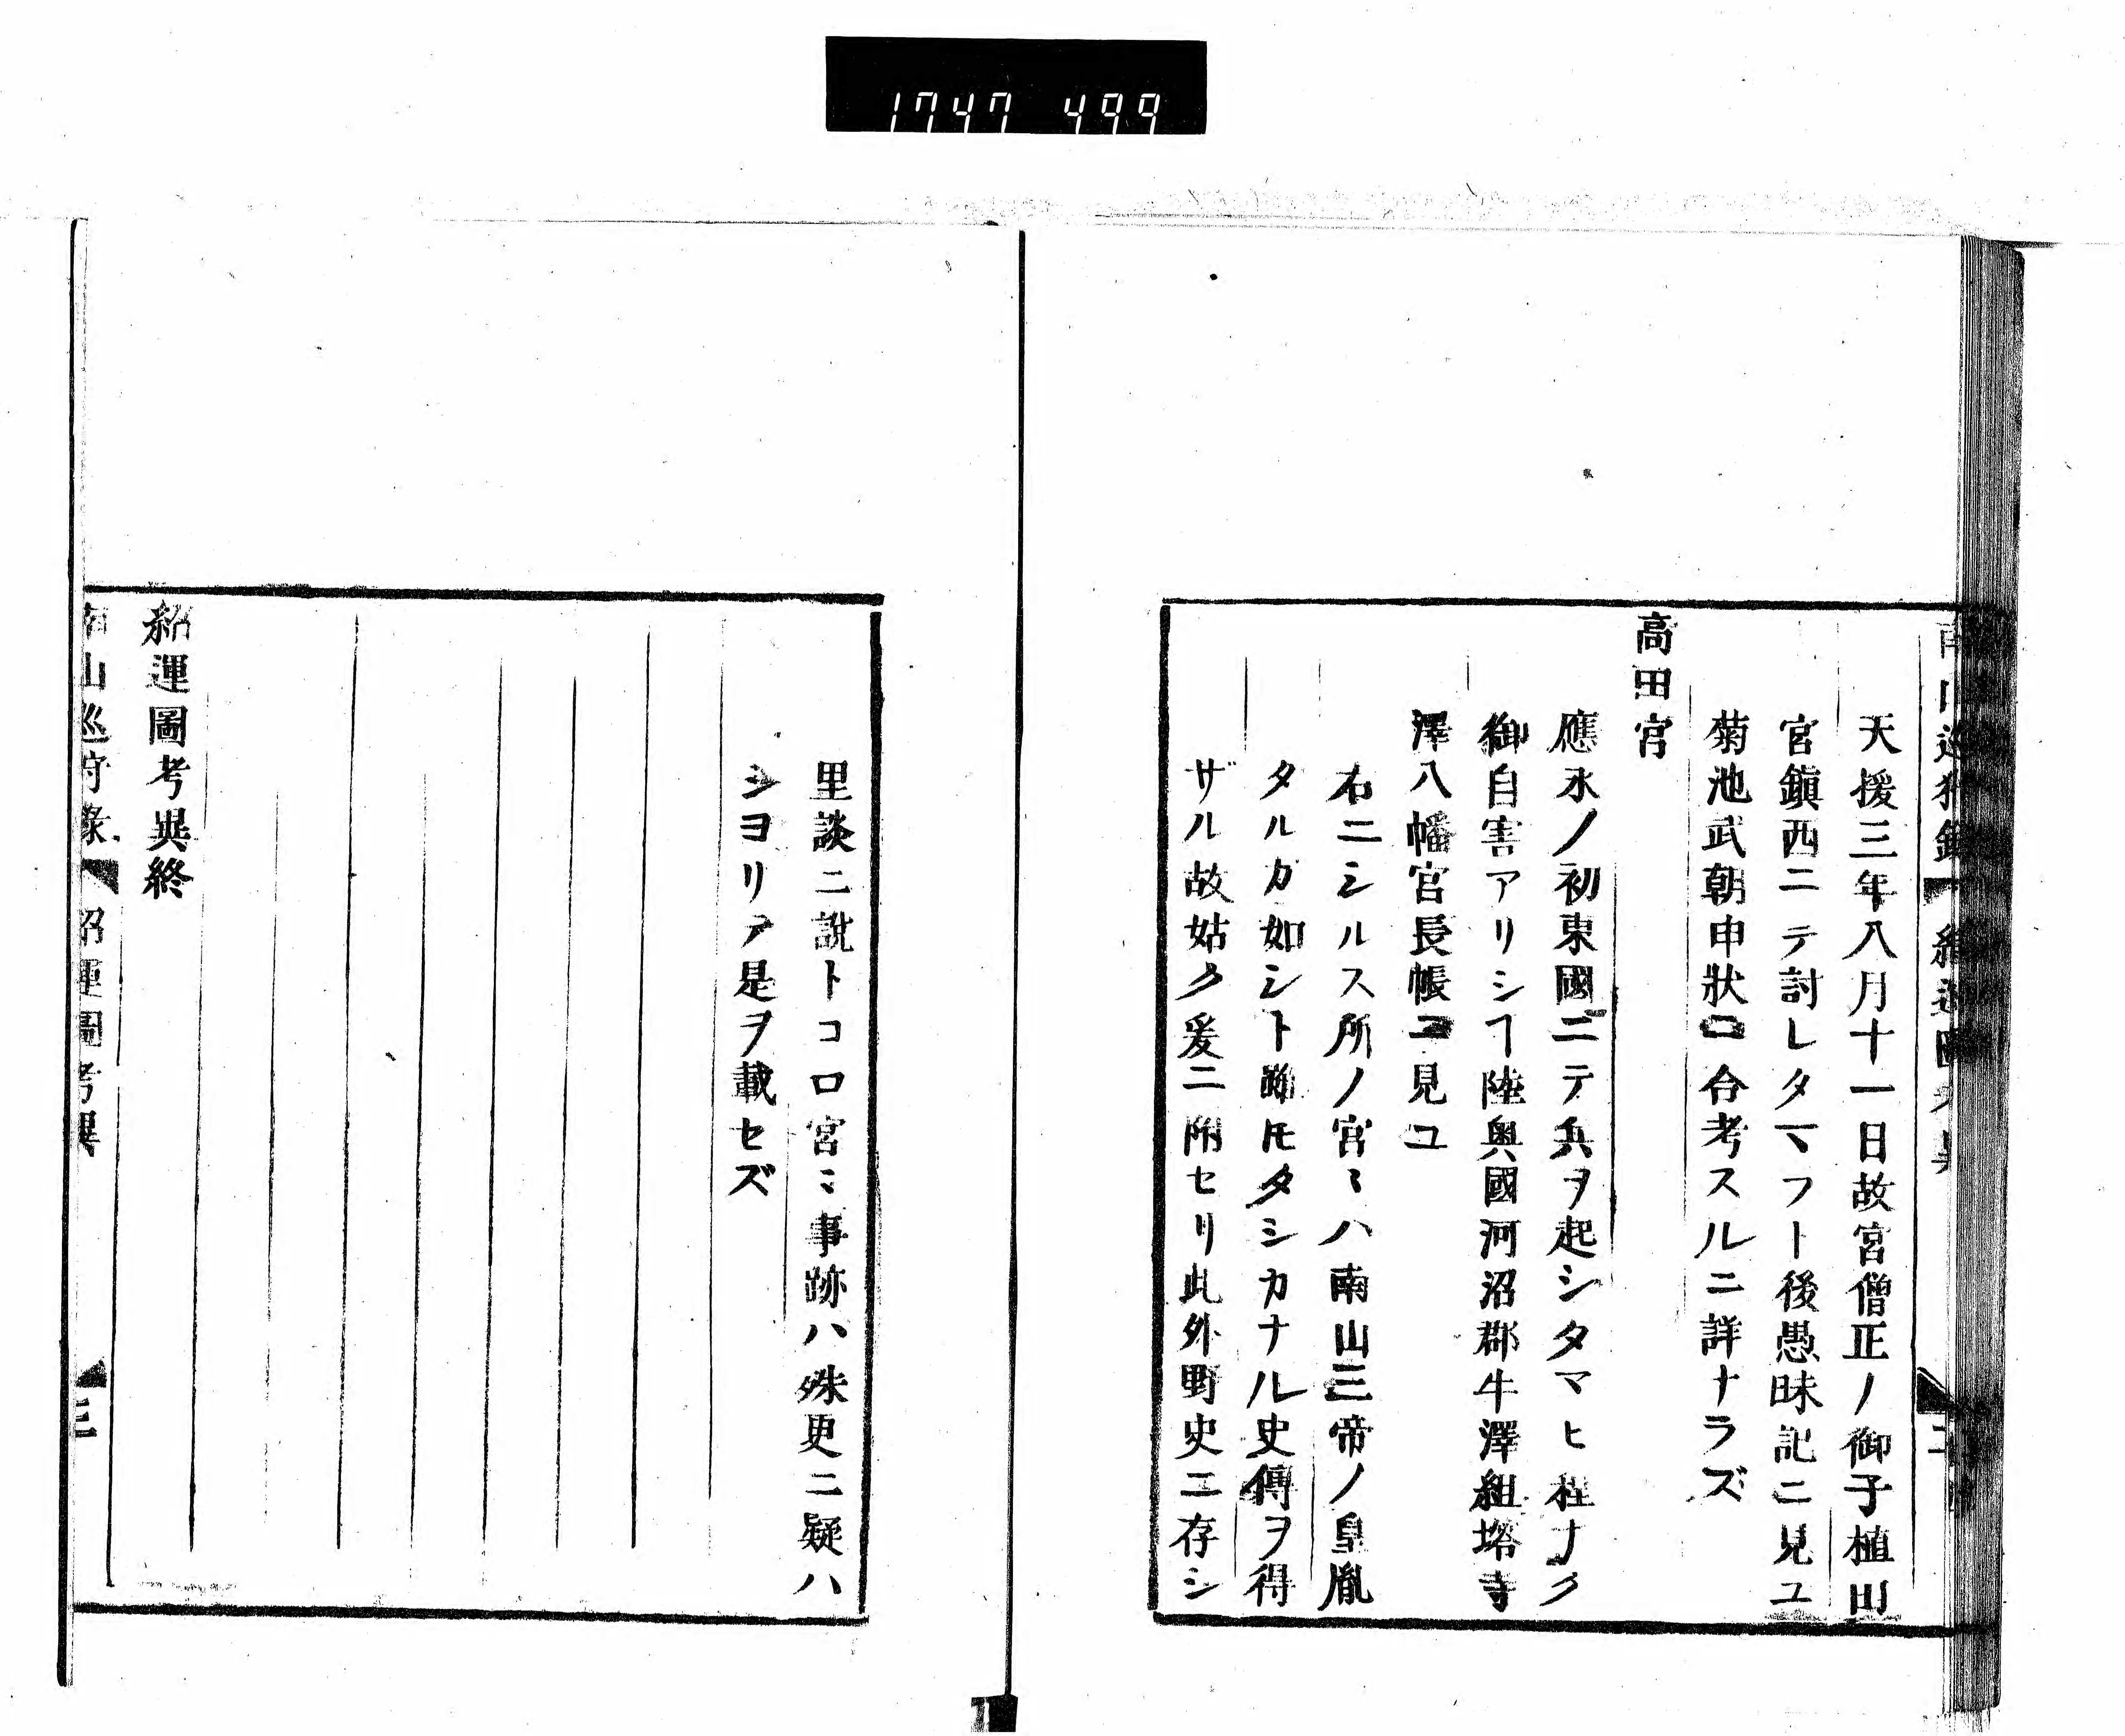 1747 499
天援三年八月十一日故宮僧正ノ御子植田
宮鎮西ニテ討レタマフト後愚昧記ニ見ユ
菊池武朝申狀ニ合考スルニ詳ナラズ
高田宮
應永ノ初東國ニテ兵ヲ起シタマヒ程ナク
御自害アリシヿ陸奥國河沼郡牛澤組塔寺
澤八幡宮長帳ニ見ユ
右ニシルス所ノ宮〻ハ南山三帝ノ皇胤
タルカ如シト雖𪜈タシカナル史傳ヲ得
ザル故姑ク爰ニ附セリ此外野史ニ存シ
里談ニ説トコロ宮〻事跡ハ殊更ニ疑ハ
シヨリア是ヲ載セズ
紹運圖考異終
南山巡狩録 紹運圖考異 三